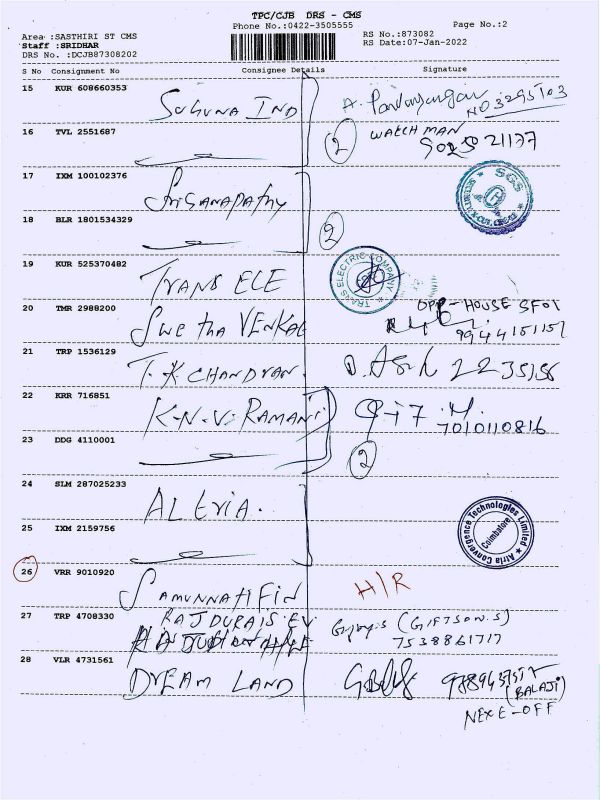 TPC/CJB DRS - CMS
Phone No.:0422-3505555
Page No.:2
Area :SASTHIRI ST CMS
RS No.:873082
Staff :SRIDHAR
RS Date:07-Jan-2022
DRS No. :DCJB87308202
S No Consignment No Consignee Details Signature
15 KUR 608660353
SUGUNA IND
16 TVL 2551687
2
WATCH MAN
17 IXM 100102376
Sri Ganapathy
SGS
18 BLR 1801534329
2
19 KUR 525370482
TRANS ELE
TRANS ELECTRIC COMPANY
20 TMR 2988200
Swetha VENKAT
OPP-HOUSE
9944151151
21 TRP 1536129
T.K CHANDRAN.
22 KRR 716851
K.N.V. RAMANI
7010110816
23 DDG 4110001
2
24 SLM 287025233
Atria Convergence Technologies Limited
Coimbatore
25 IXM 2159756
26 VRR 9010920
SAMUNNATI FIN
H/R
27 TRP 4708330
RAJDURAI S.EV
(GIFTSON.S)
7538861717
28 VLR 4731561
DREAM LAND
(BALAJI)